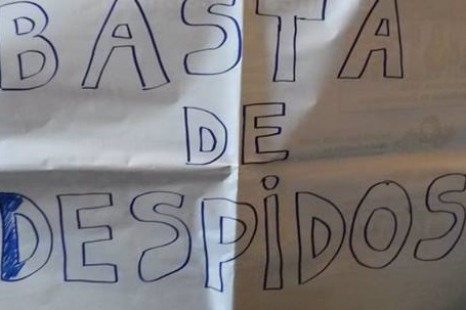 BASTA
DE
DESPiDOS